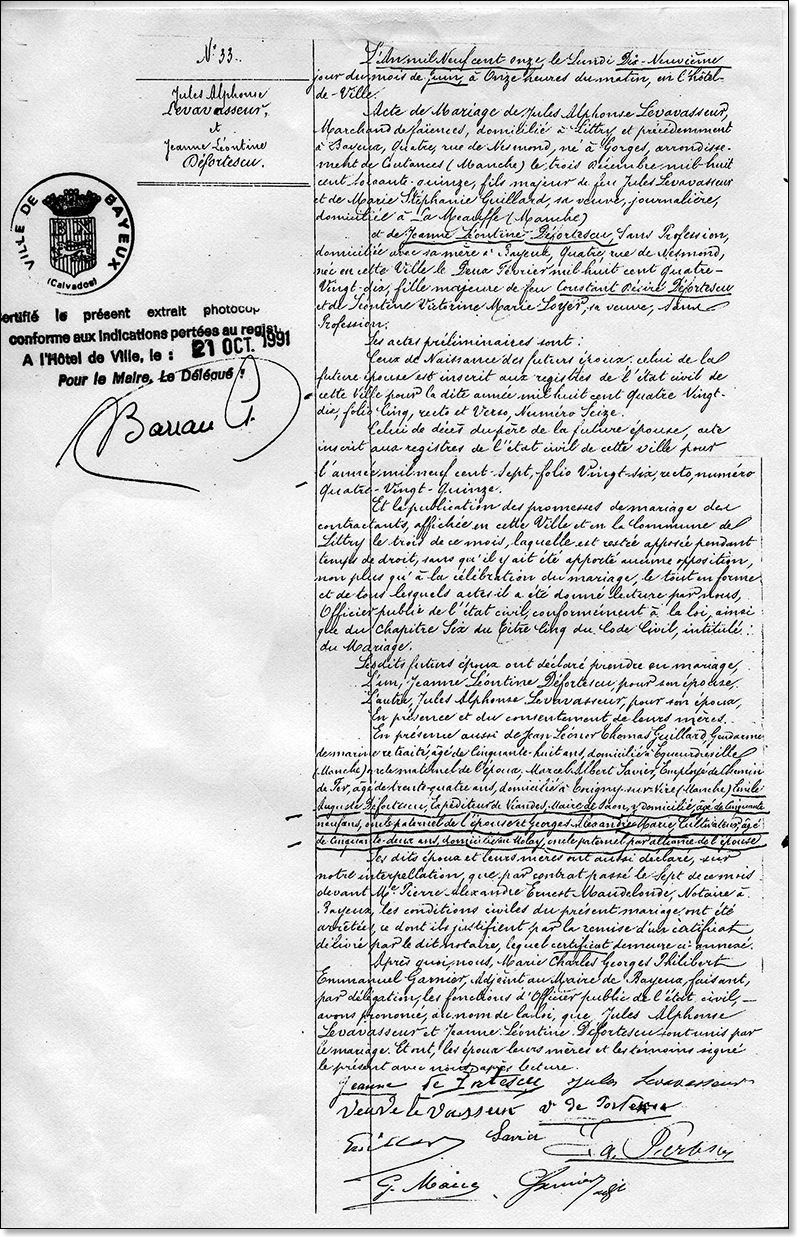 N° 33.
Jules Alphonse
Levavasseur,
et
Jeanne Léontine
Défortescu.
VILLE DE BAYEUX
(Calvados)
ertifié le présent extrait photocop
conforme aux indications portées au regist
A l'Hôtel de Ville, le : 21 OCT. 1991
Pour le Maire, Le Délégué :
L'An mil Neuf cent onze, le Lundi Dix-Neuvième
jour du mois de Juin, à Onze heures du matin, en l'hôtel-
de-Ville.
Acte de Mariage de Jules Alphonse Levavasseur,
Marchand de faïences, domicilié à Littry et précédemment
à Bayeux, Quatre, rue de Nesmond, né à Gorges, arrondisse-
ment de Coutances (Manche) le trois Décembre mil huit
cent soixante-quinze, fils majeur de feu Jules Levavasseur
et de Marie Stéphanie Guillard, sa veuve, journalière,
domiciliée à La Meauffe (Manche)
et de Jeanne Léontine Défortescu, Sans Profession,
domiciliée avec sa mère à Bayeux, Quatre rue de Nesmond,
née en cette Ville le Deux Février mil huit cent Quatre-
Vingt-dix, fille majeure de feu Constant Désiré Défortescu
et de Léontine Victorine Marie Loyer, sa veuve, sans
Profession.
Les actes préliminaires sont :
Ceux de Naissance des futurs époux: celui de la
future épouse est inscrit aux registres de l'état civil de
cette Ville pour la dite année mil huit cent Quatre Vingt-
dix, folio Cinq, recto et Verso, Numéro Seize.
Celui de décès du père de la future épouse, acte
inscrit aux registres de l'état civil de cette ville pour
l'année mil neuf cent-sept, folio Vingt-six, recto, numéro
Quatre-Vingt-Quinze.
Et la publication des promesses de mariage des
contractants, affichée en cette Ville et en la Commune de
Littry le trois de ce mois, laquelle est restée apposée pendant
temps de droit, sans qu'il y ait été apporté aucune opposition,
non plus qu'à la célébration du mariage, le tout en forme
et de tous lesquels actes il a été donné lecture par nous,
Officier public de l'état civil, conformément à la loi, ainsi
que du Chapitre Six du Titre Cinq du Code Civil, intitulé :
du Mariage.
Lesdits futurs époux ont déclaré prendre en mariage,
L'un, Jeanne Léontine Défortescu, pour son épouse,
L'autre, Jules Alphonse Levavasseur, pour son époux,
En présence et du consentement de leurs mères.
En présence aussi de Jean Léonor Thomas Guillard, Gendarme
de marine retraité, âgé de Cinquante-huit ans, domicilié à Equeurdreville
(Manche) oncle maternel de l'époux, Marcel Albert Savier, Employé de Chemin
de Fer, âgé de trente-quatre ans, domicilié à Condé-sur-Vire (Manche) Emile
Auguste Défortescu, Expéditeur de Viandes, Maire de Saon, y domicilié, âgé de Cinquante
neuf ans, oncle paternel de l'épouse et Georges Alexandre Marie, Cultivateur, âgé
de Cinquante-deux ans, domicilié au Molay, oncle paternel par alliance de l'épouse
Les dits époux et leurs mères ont aussi déclaré, sur
notre interpellation, que par contrat passé le Sept de ce mois
devant Me Pierre Alexandre Ernest Maudelonde, Notaire à
Bayeux, les conditions civiles du présent mariage ont été
arrêtées, ce dont ils justifient par la remise d'un certificat
délivré par le dit notaire, lequel certificat demeure ci-annexé.
Après quoi, nous, Marie Charles Georges Philibert
Emmanuel Garnier, Adjoint au Maire de Bayeux, faisant,
par délégation, les fonctions d'Officier public de l'état civil, —
avons prononcé, au nom de la loi, que Jules Alphonse
Levavasseur et Jeanne Léontine Défortescu sont unis par
le mariage. Et ont, les époux leurs mères et les témoins signé
le présent avec nous après lecture.
Jeanne de Fortescu Jules Levavasseur
Veuve le vasseur v de Fortescu
Savier
G. Marie Garnier adjt